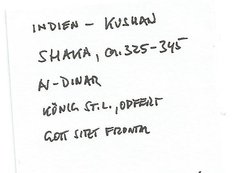 INDIEN – KUSHAN
SHAKA, ca. 325–345
AV-DINAR
KÖNIG ST. L., OPFERT
GOTT SITZT FRONTAL